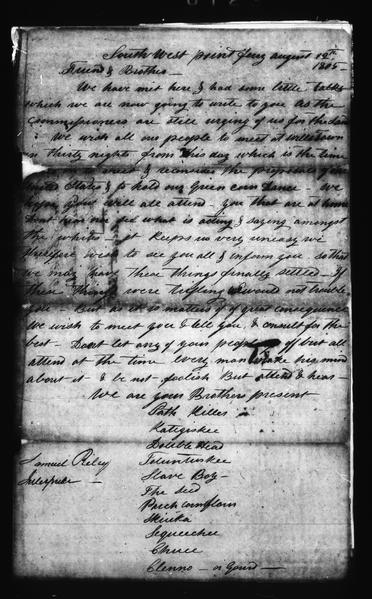 South West point Jenz august 19th
1805 -
Friend & Brother -
We have met here & had some little talks
which we are now going to write to you as the
Commissioners are still urging of us for the land
: We wish all our people to meet at Willstown
in thirty nights from this day which is the time
meet & reconsider the proposals of
United States & to hold our Green corn Dance - We
hope you will all attend - you that are at home
dont hear nor see what is acting & saying amongst
the whites - it keeps us very uneasy we
therefore wish to see you all & inform you so that
we may have these things finally settled - If
these things were trifling would not trouble
you But as it is matters of great consequence
We wish to meet you & tell you & consult for the
best - Dont let any of your people of but all
attend at the time every man make his mind
about it - & be not foolish But attend & hear -
We are your Brothers present
Path Killer
Kategiskee
Double Head
Samuel Riley
Interpreter
Toluntuskee
Slave Boy -
The Seed
Skiuka
Sequeechee
Chuee
Clenno - or Gourd -